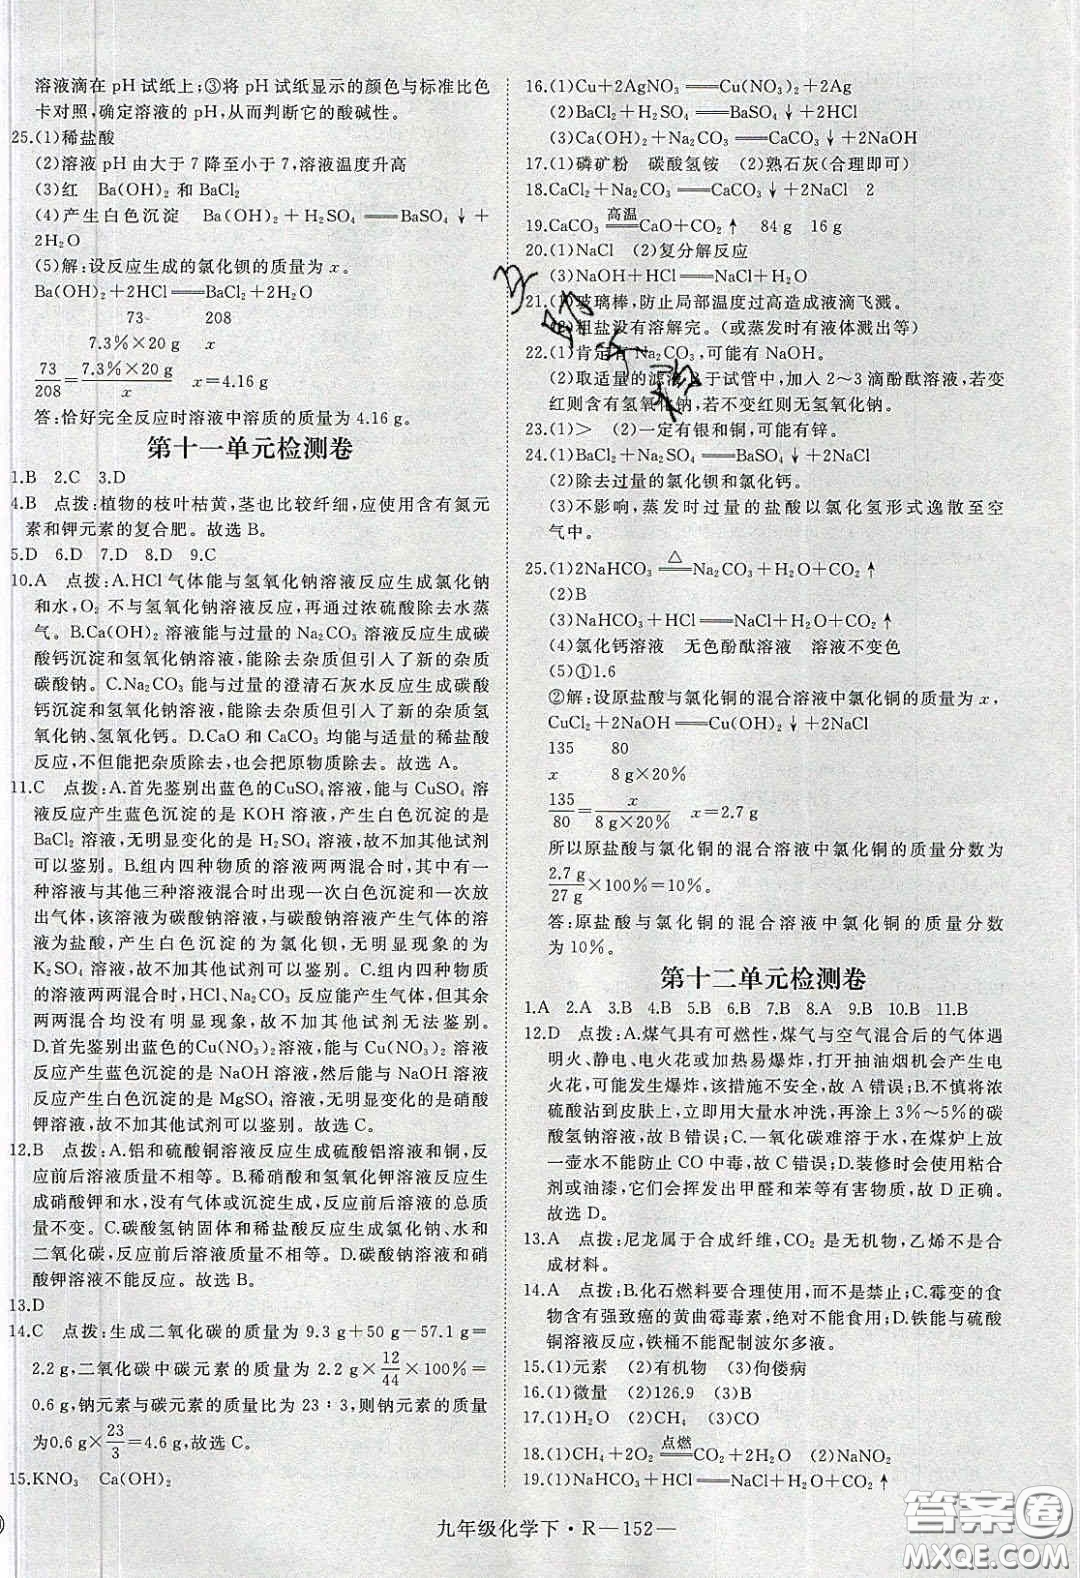 溶液滴在 pH 试纸上;③将 pH 试纸显示的颜色与标准比色
卡对照,确定溶液的 pH,从而判断它的酸碱性。
25.(1)稀盐酸
(2)溶液 pH 由大于 7 降至小于 7,溶液温度升高
(3)红 Ba(OH)₂ 和 BaCl₂
(4)产生白色沉淀 Ba(OH)₂+H₂SO₄══BaSO₄↓+
2H₂O
(5)解:设反应生成的氯化钡的质量为 x。
Ba(OH)₂+2HCl══BaCl₂+2H₂O
73 208
7.3%×20 g x
73/208=7.3%×20 g/x x=4.16 g
答:恰好完全反应时溶液中溶质的质量为 4.16 g。
第十一单元检测卷
1.B 2.C 3.D
4.B 点拨:植物的枝叶枯黄,茎也比较纤细,应使用含有氮元
素和钾元素的复合肥。故选 B。
5.D 6.D 7.D 8.D 9.C
10.A 点拨:A.HCl 气体能与氢氧化钠溶液反应生成氯化钠
和水,O₂ 不与氢氧化钠溶液反应,再通过浓硫酸除去水蒸
气。B.Ca(OH)₂ 溶液能与过量的 Na₂CO₃ 溶液反应生成碳
酸钙沉淀和氢氧化钠溶液,能除去杂质但引入了新的杂质
碳酸钠。C.Na₂CO₃ 能与过量的澄清石灰水反应生成碳酸
钙沉淀和氢氧化钠溶液,能除去杂质但引入了新的杂质氢
氧化钠、氢氧化钙。D.CaO 和 CaCO₃ 均能与适量的稀盐酸
反应,不但能把杂质除去,也会把原物质除去。故选 A。
11.C 点拨:A.首先鉴别出蓝色的CuSO₄溶液,能与 CuSO₄ 溶
液反应产生蓝色沉淀的是 KOH 溶液,产生白色沉淀的是
BaCl₂ 溶液,无明显变化的是 H₂SO₄ 溶液,故不加其他试剂
可以鉴别。B.组内四种物质的溶液两两混合时,其中有一
种溶液与其他三种溶液混合时出现一次白色沉淀和一次放
出气体,该溶液为碳酸钠溶液,与碳酸钠溶液产生气体的溶
液为盐酸,产生白色沉淀的为氯化钡,无明显现象的为
K₂SO₄ 溶液,故不加其他试剂可以鉴别。C.组内四种物质
的溶液两两混合时,HCl、Na₂CO₃ 反应能产生气体,但其余
两两混合均没有明显现象,故不加其他试剂无法鉴别。
D.首先鉴别出蓝色的Cu(NO₃)₂溶液,能与 Cu(NO₃)₂ 溶液
反应产生蓝色沉淀的是 NaOH 溶液,然后能与 NaOH 溶液
反应产生白色沉淀的是 MgSO₄ 溶液,无明显变化的是硝酸
钾溶液,故不加其他试剂可以鉴别。故选 C。
12.B 点拨:A.铝和硫酸铜溶液反应生成硫酸铝溶液和铜,反
应前后溶液质量不相等。B.稀硝酸和氢氧化钾溶液反应
生成硝酸钾和水,没有气体或沉淀生成,反应前后溶液的总质
量不变。C.碳酸氢钠固体和稀盐酸反应生成氯化钠、水和
二氧化碳,反应前后溶液质量不相等。D.碳酸钠溶液和硝
酸钾溶液不能反应。故选 B。
13.D
14.C 点拨:生成二氧化碳的质量为 9.3 g+50 g-57.1 g=
2.2 g,二氧化碳中碳元素的质量为 2.2 g×12/44×100%=
0.6 g,钠元素与碳元素的质量比为 23∶3,则钠元素的质量
为0.6 g×23/3=4.6 g,故选 C。
15.KNO₃ Ca(OH)₂
16.(1)Cu+2AgNO₃══Cu(NO₃)₂+2Ag
(2)BaCl₂+H₂SO₄══BaSO₄↓+2HCl
(3)Ca(OH)₂+Na₂CO₃══CaCO₃↓+2NaOH
17.(1)磷矿粉 碳酸氢铵 (2)熟石灰(合理即可)
18.CaCl₂+Na₂CO₃══CaCO₃↓+2NaCl 2
19.CaCO₃ 高温══ CaO+CO₂↑ 84 g 16 g
20.(1)NaCl (2)复分解反应
(3)NaOH+HCl══NaCl+H₂O
21.(1)玻璃棒,防止局部温度过高造成液滴飞溅。
(2)粗盐没有溶解完。(或蒸发时有液体溅出等)
22.(1)肯定有 Na₂CO₃,可能有 NaOH。
(2)取适量的滤液B于试管中,加入 2~3 滴酚酞溶液,若变
红则含有氢氧化钠,若不变红则无氢氧化钠。
23.(1)> (2)一定有银和铜,可能有锌。
24.(1)BaCl₂+Na₂SO₄══BaSO₄↓+2NaCl
(2)除去过量的氯化钡和氯化钙。
(3)不影响,蒸发时过量的盐酸以氯化氢形式逸散至空
气中。
25.(1)2NaHCO₃ △══ Na₂CO₃+H₂O+CO₂↑
(2)B
(3)NaHCO₃+HCl══NaCl+H₂O+CO₂↑
(4)氯化钙溶液 无色酚酞溶液 溶液不变色
(5)①1.6
②解:设原盐酸与氯化铜的混合溶液中氯化铜的质量为 x,
CuCl₂+2NaOH══Cu(OH)₂↓+2NaCl
135 80
x 8 g×20%
135/80=x/8 g×20% x=2.7 g
所以原盐酸与氯化铜的混合溶液中氯化铜的质量分数为
2.7 g/27 g×100%=10%。
答:原盐酸与氯化铜的混合溶液中氯化铜的质量分数
为 10%。
第十二单元检测卷
1.A 2.A 3.B 4.B 5.B 6.B 7.B 8.A 9.B 10.B 11.B
12.D 点拨:A.煤气具有可燃性,煤气与空气混合后的气体遇
明火、静电、电火花或加热易爆炸,打开抽油烟机会产生电
火花,可能发生爆炸,该措施不安全,故 A 错误;B.不慎将浓
硫酸沾到皮肤上,立即用大量水冲洗,再涂上 3%~5%的碳
酸氢钠溶液,故 B 错误;C.一氧化碳难溶于水,在煤炉上放
一壶水不能防止 CO 中毒,故 C 错误;D.装修时会使用粘合
剂或油漆,它们会挥发出甲醛和苯等有害物质,故 D 正确。
故选 D。
13.A 点拨:尼龙属于合成纤维,CO₂ 是无机物,乙烯不是合
成材料。
14.A 点拨:B.化石燃料要合理使用,而不是禁止;C.霉变的食
物含有强致癌的黄曲霉毒素,绝对不能食用;D.铁能与硫酸
铜溶液反应,铁桶不能配制波尔多液。
15.(1)元素 (2)有机物 (3)佝偻病
16.(1)微量 (2)126.9 (3)B
17.(1)H₂O (2)CH₄ (3)CO
18.(1)CH₄+2O₂ 点燃══ CO₂+2H₂O (2)NaNO₂
19.(1)NaHCO₃+HCl══NaCl+H₂O+CO₂↑
九年级化学下·R—152—
答案圈
MXQE.COM